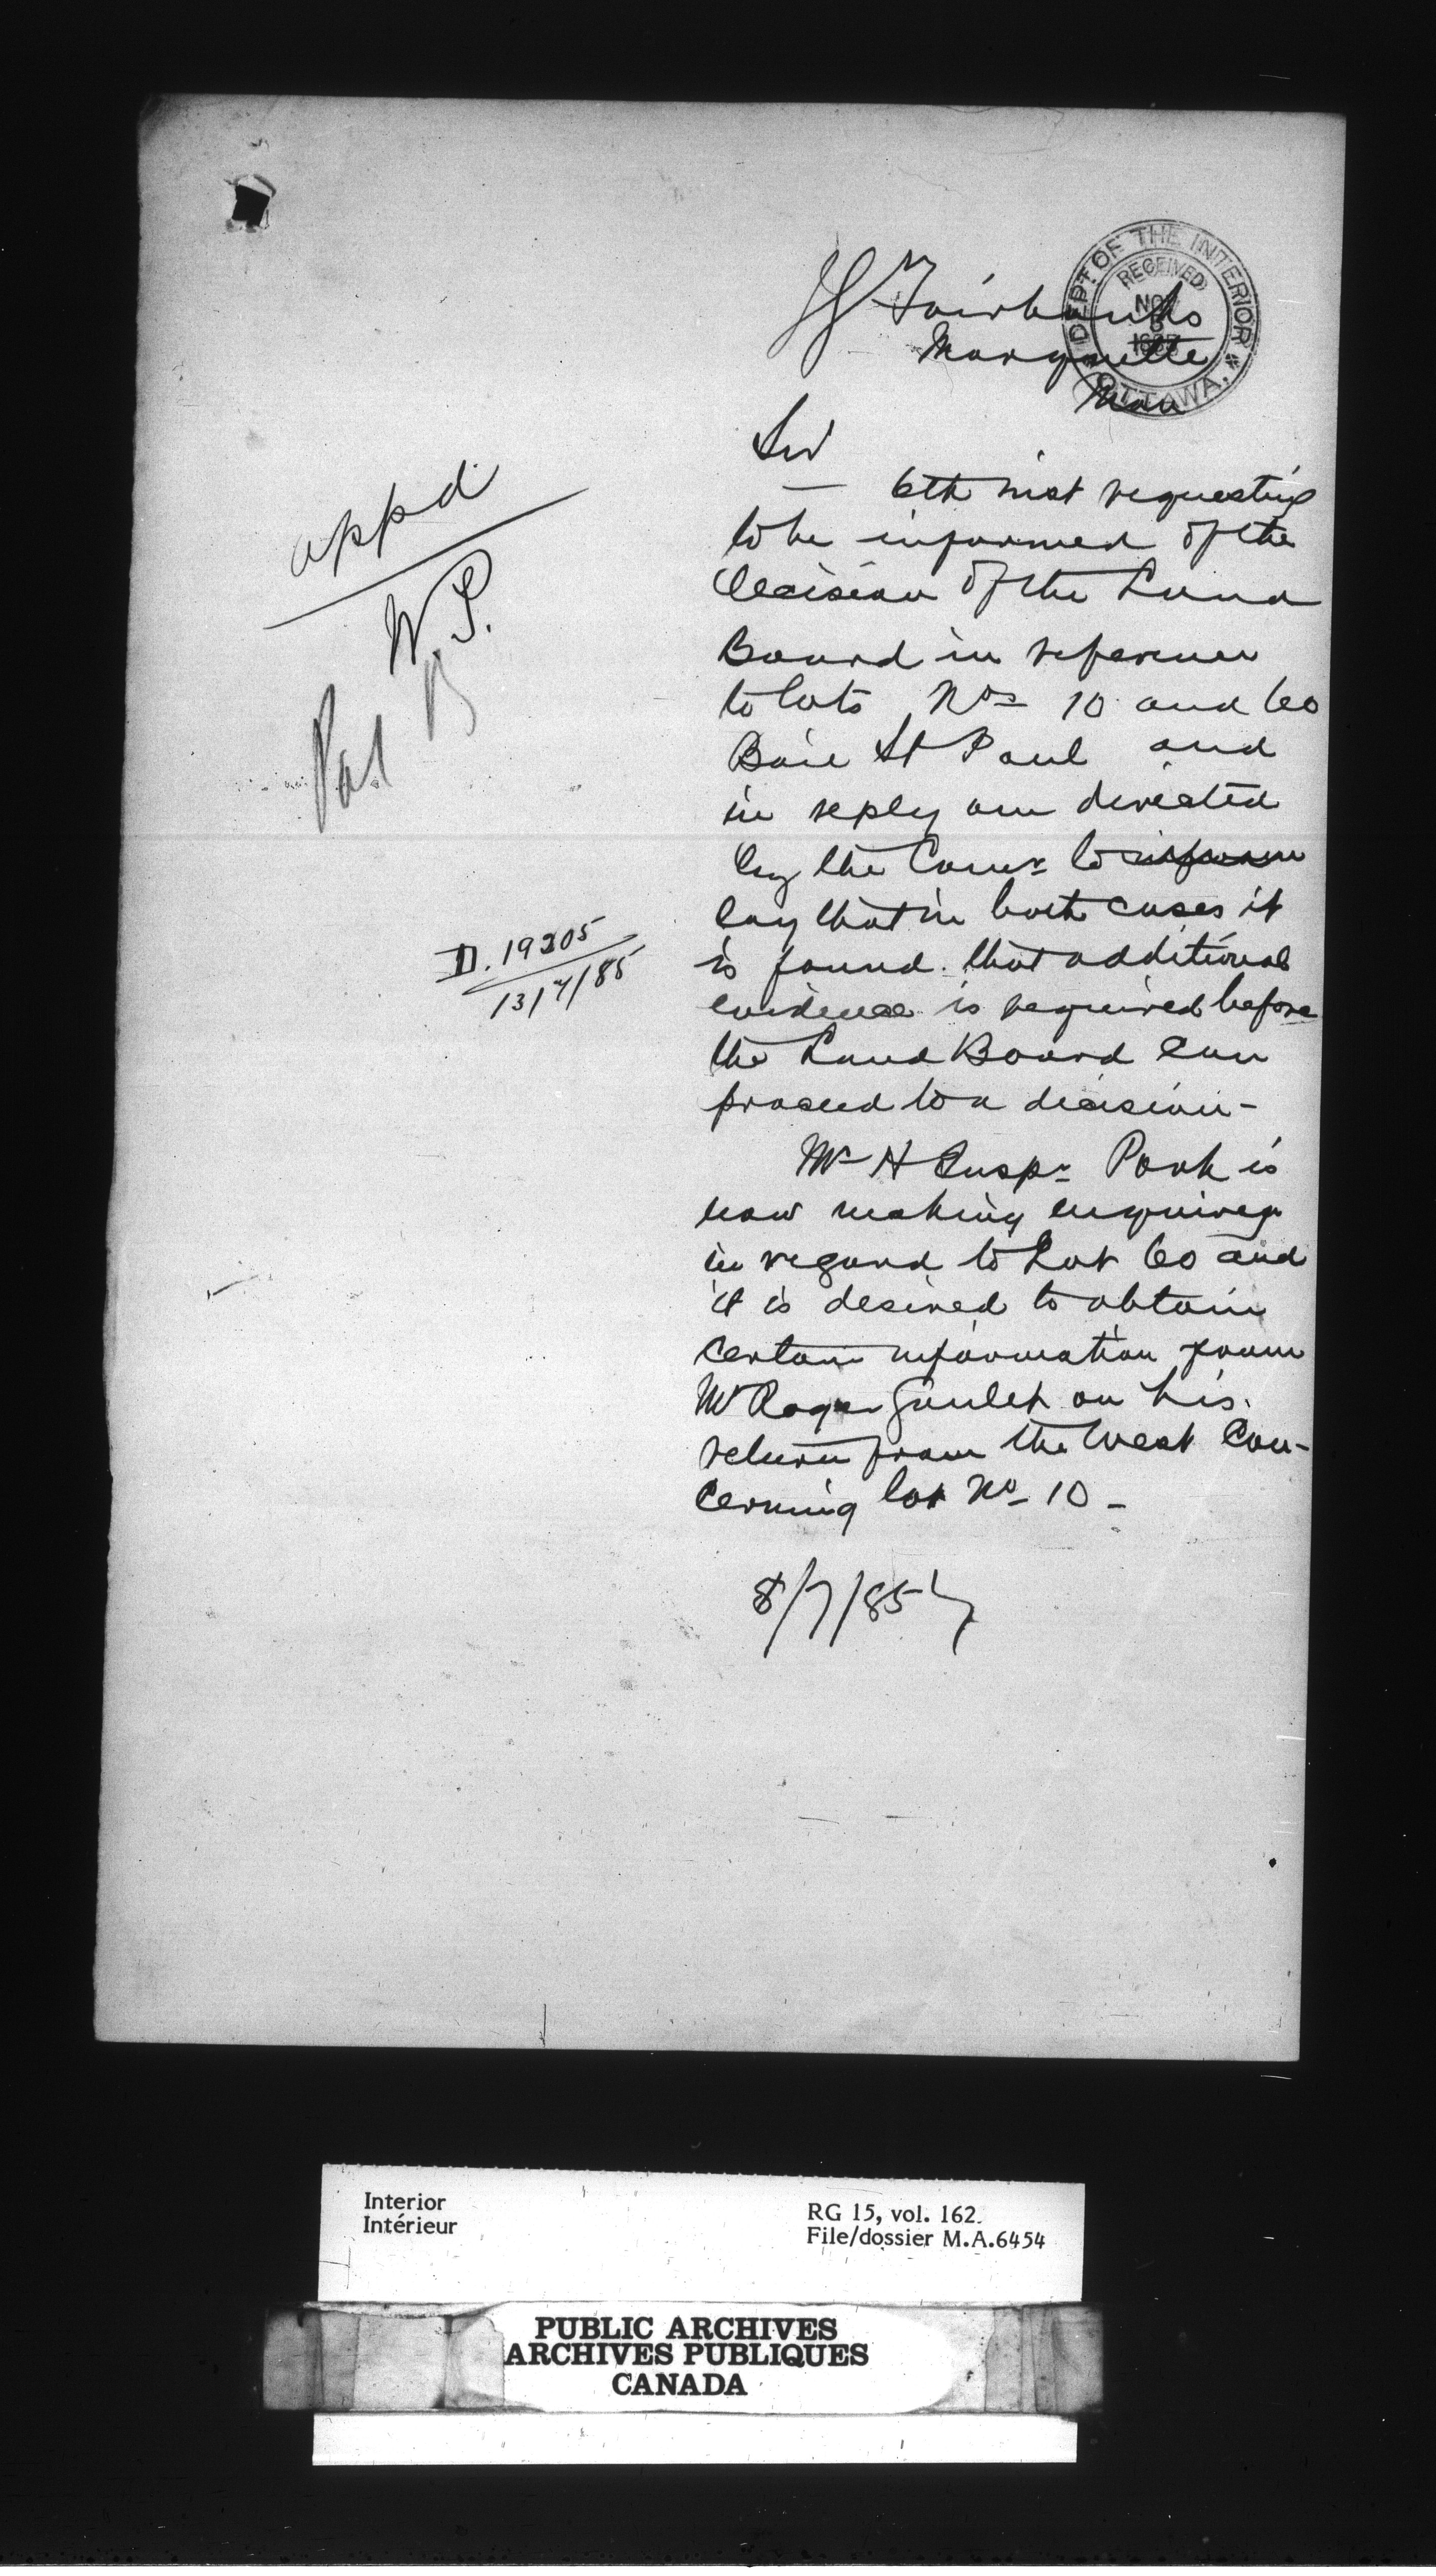 DEPT OF THE INTERIOR
RECEIVED
NOV
8
1887
OTTAWA.
Fairbanks
Marquette
Man
Sir
6th inst requesting
to be informed of the
decision of the Land
Board in reference
to lots Nos 10 and 60
Baie St Paul and
in reply am directed
by the Comr to inform
say that in both cases it
is found that additional
evidence is required before
the Land Board can
proceed to a decision -
Mr H Inspr Park is
now making enquiries
in regard to Lot 60 and
it is desired to obtain
certain information from
Mr Roger Goulet on his
return from the West con-
cerning lot No 10 -
8/7/85
appd
D. 19205
13/7/85
Interior
Intérieur
RG 15, vol. 162.
File/dossier M.A.6454
PUBLIC ARCHIVES
ARCHIVES PUBLIQUES
CANADA